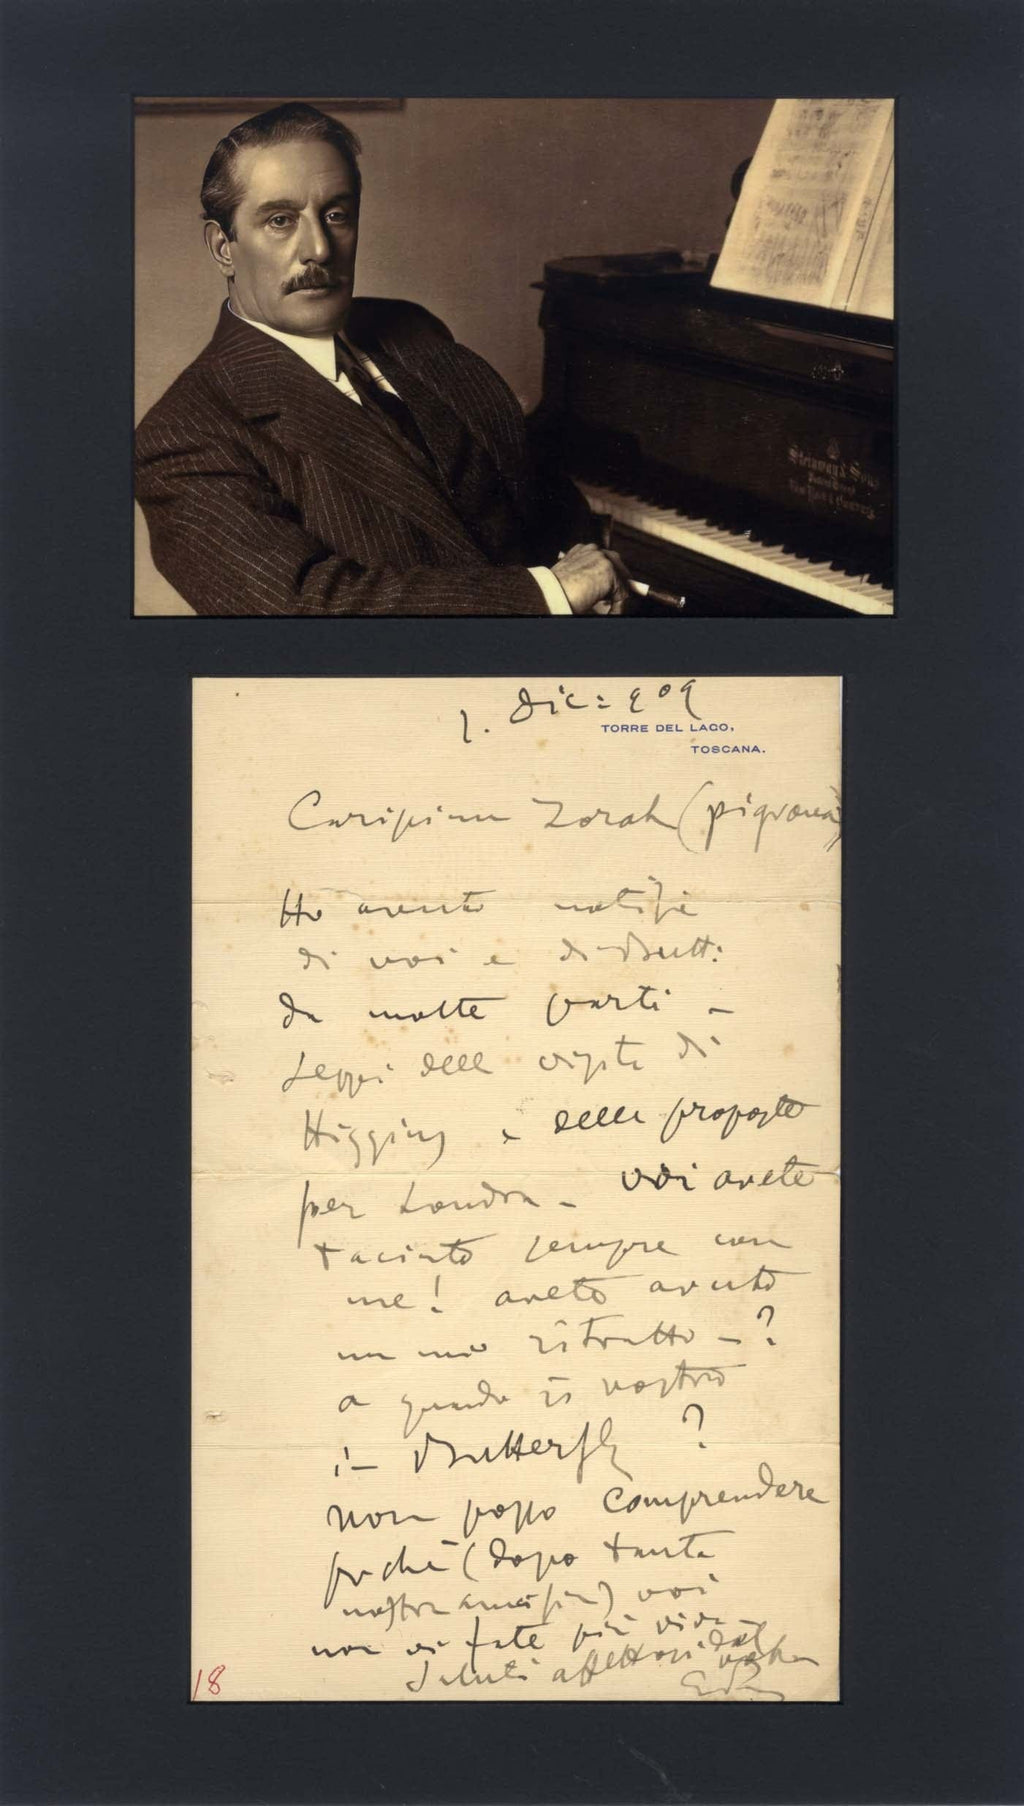 Steinway & Sons
1. Dic: 909
TORRE DEL LAGO,
TOSCANA.
Carissima Zorah (pigrona)
Ho avuto notizie
di voi e di Butt:
da molte parti –
Seppi della visita di
Higgins e delle proposte
per Londra – voi avete
taciuto sempre con
me! avete avuto
un mio ritratto – ?
a quando il vostro
in Butterfly ?
non posso comprendere
perchè (dopo tanta
nostra amicizia) voi
non vi fate più viva
Saluti affettuosi dal vostro
18